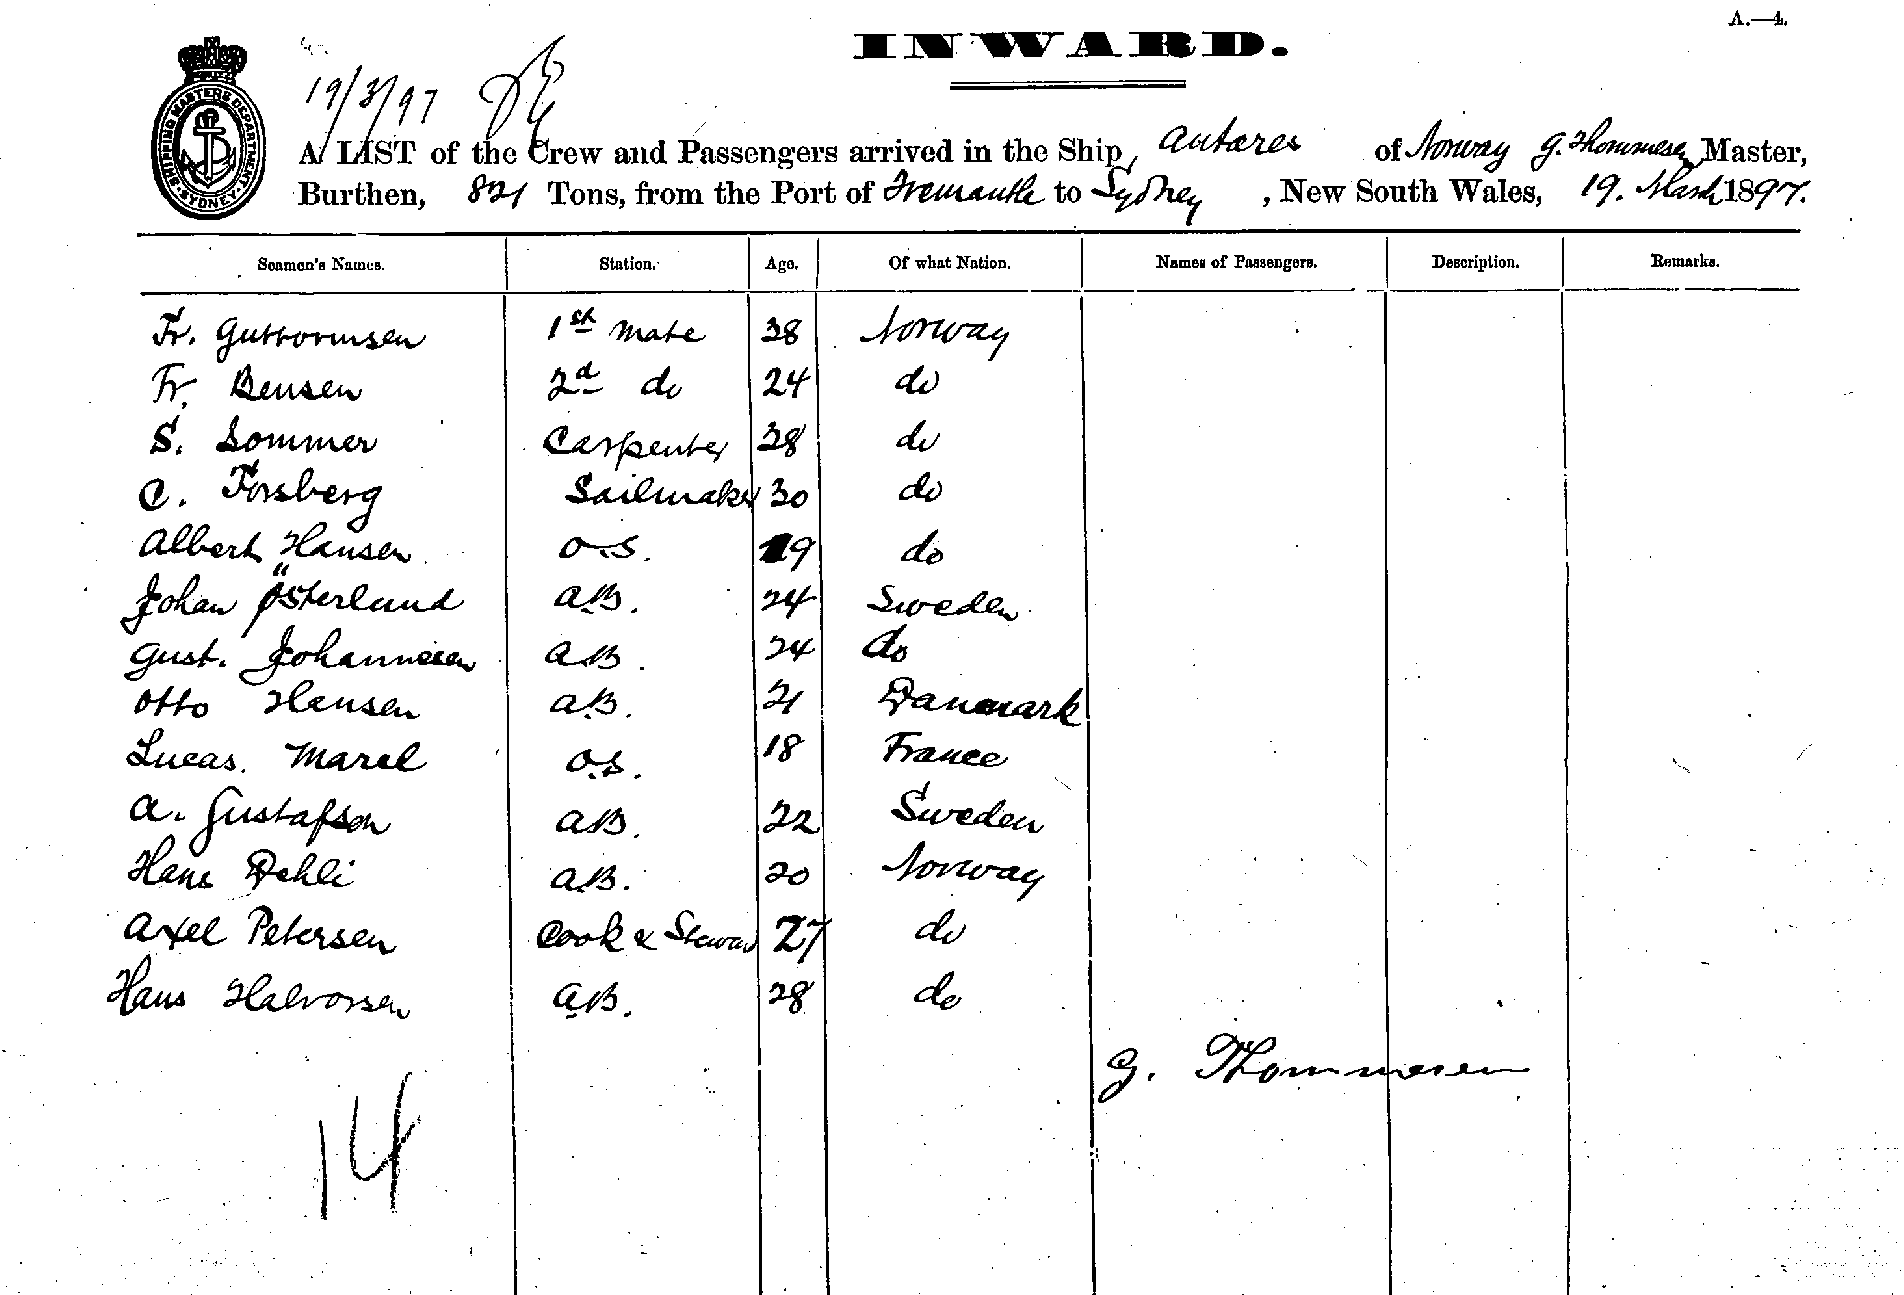 A.—4.
INWARD.
SHIPPING MASTERS DEPARTMENT SYDNEY
19/3/97
A LIST of the Crew and Passengers arrived in the Ship, Antares of Norway G. Thommesen Master,
Burthen, 821 Tons, from the Port of Fremantle to Sydney, New South Wales, 19. March 1897.
Seamen's Names. Station. Age. Of what Nation. Names of Passengers. Description. Remarks.
Fr. Guttormsen 1st Mate 38 Norway
Fr. Bensen 2d do 24 do
S. Sommer Carpenter 38 do
C. Forsberg Sailmaker 30 do
Albert Hansen O.S. 19 do
Johan Österlund A.B. 24 Sweden
Gust. Johannesen A.B. 24 do
Otto Hansen A.B. 21 Danmark
Lucas. Marel O.S. 18 France
A. Gustafson A.B. 22 Sweden
Hans Dehli A.B. 20 Norway
Axel Petersen Cook & Steward 27 do
Hans Halvorsen A.B. 28 do
G. Thommesen
14